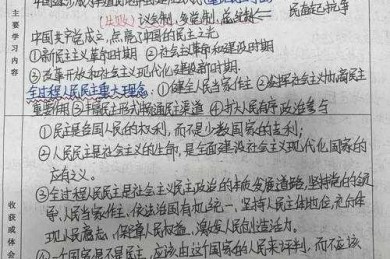 (照搬) 议会制,多党制,总统制 ← 民奋起抗争
中国共产党成立,点亮了中国的民主之光
①新民主主义革命时期 ②社会主义革命和建设时期
③改革开放和社会主义现代化建设新时期
全过程人民民主重大理念: ①健全人民当家作主 ②发挥社会主义协商民主
重要作用 ③丰富民主形式拓宽民主渠道 ④扩大人民有序政治参与
①民主是各国人民的权利,而不是少数国家的专利;
②人民民主是社会主义的生命,是全面建设社会主义现代化国家的
应有之义。
③全过程人民民主是社会主义民主政治的 发展道路,坚持党的领
导、人民当家作主、依法治国有机统一,坚持人民主体地位,充分体
现人民意志、保障人民权益、激发人民创造活力。
④一个国家是不是民主,应该由这个国家的人民来评判,而不应该
主要学习内容
收获或体会